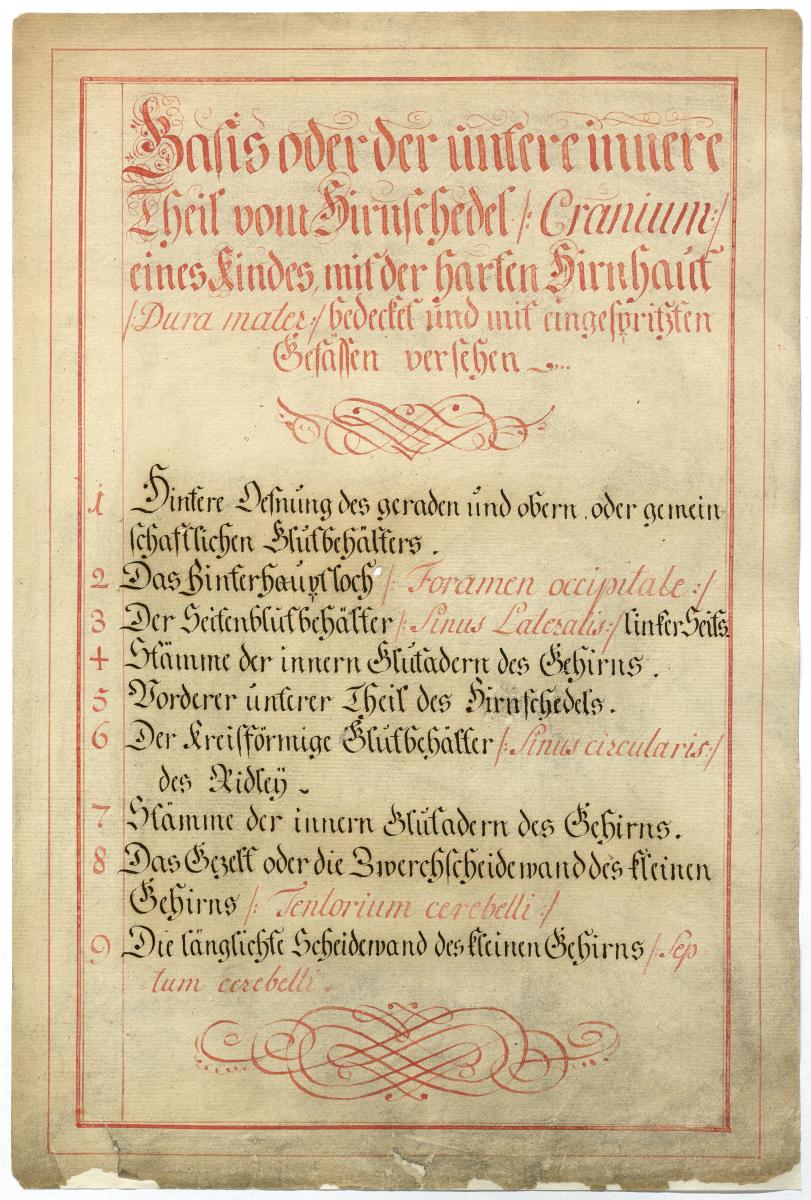 Basis oder der untere innere
Theil vom Hirnschedel /: Cranium :/
eines Kindes, mit der harten Hirnhaut
/: Dura mater :/ bedecket und mit eingespritzten
Gefässen versehen
1 Hintere Oefnung des geraden und obern, oder gemein
schaftlichen Blutbehälters.
2 Das Hinterhauptloch /: Foramen occipitale :/
3 Der Seitenblutbehälter /: Sinus Lateralis :/ linker Seits.
4 Stämme der innern Blutadern des Gehirns.
5 Vorderer unterer Theil des Hirnschedels.
6 Der Kreisförmige Blutbehälter /: Sinus circularis :/
des Ridleÿ.
7 Stämme der innern Blutadern des Gehirns.
8 Das Gezelt oder die Zwerchscheidewand des kleinen
Gehirns /: Tentorium cerebelli :/
9 Die länglichte Scheidewand des kleinen Gehirns /: Sep
tum cerebelli.